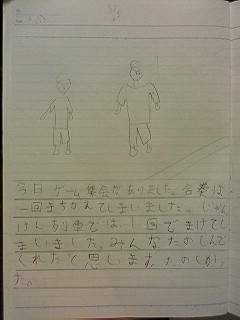 今日ゲーム集会がありました。合奏は
一回まちがえてしまいました。じゃん
けん列車では、1回でまけてし
まいました。みんなたのしんで
くれたと思います。たのしかっ
た。